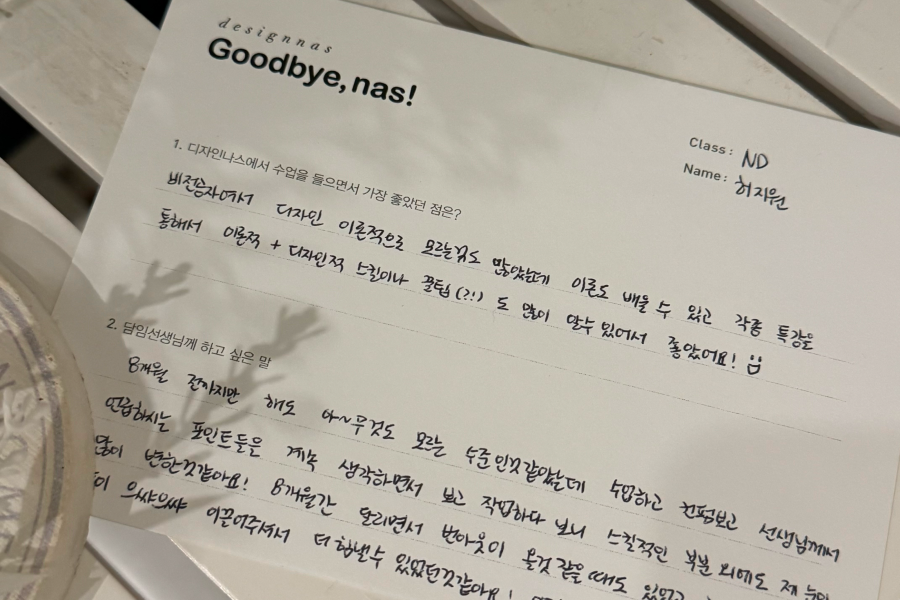 designnas
Goodbye, nas!
Class: ND
Name: 허지원
1. 디자인나스에서 수업을 들으면서 가장 좋았던 점은?
비전공자여서 디자인 이론적으로 모르는것도 많았는데 이론도 배울 수 있고 각종 특강을
통해서 이론적 + 디자인적 스킬이나 꿀팁(?!) 도 많이 알수 있어서 좋았어요!
2. 담임선생님께 하고 싶은 말
8개월 전까지만 해도 아~무것도 모르는 수준인것같았는데 수업하고 컨펌보고 선생님께서
언급하시는 포인트들을 계속 생각하면서 보고 작업하다 보니 스킬적인 부분 외에도 제
많이 변한것같아요! 8개월간 달리면서 번아웃이 올것 같을 때도 있었고
으쌰으쌰 이끌어주셔서 더 힘낼수 있었던것같아요!